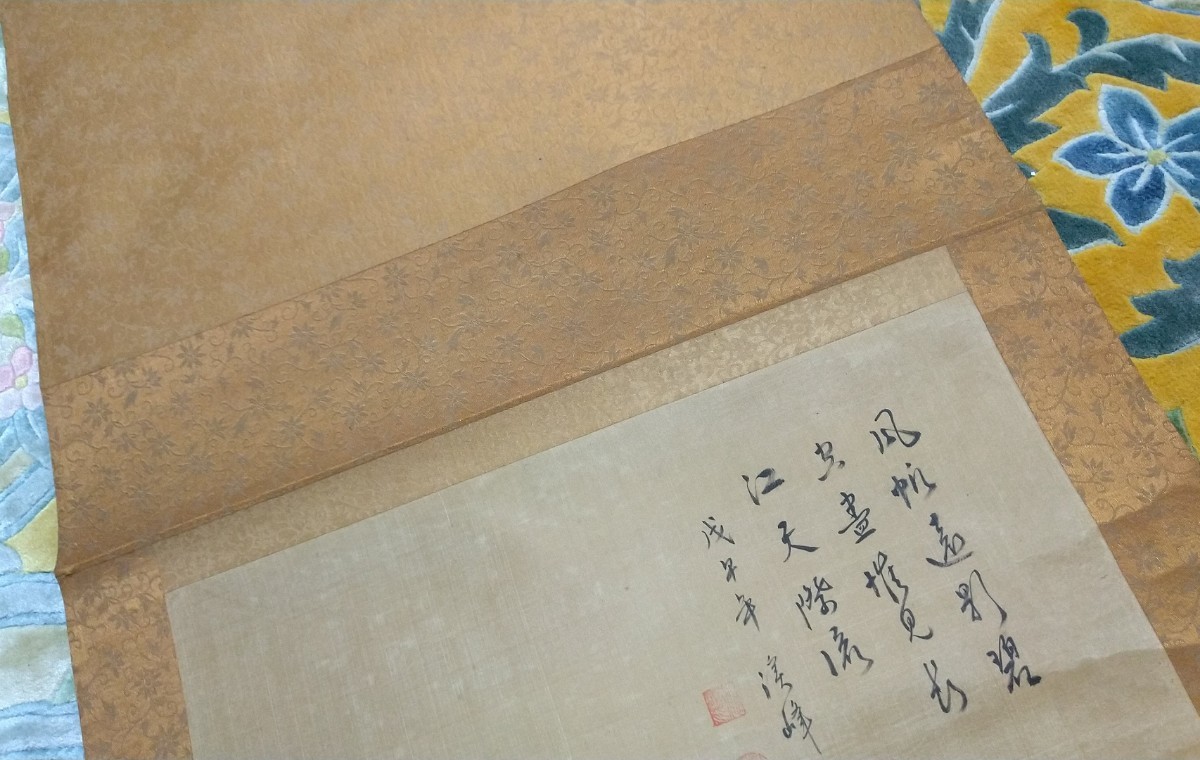 風帆遠影碧
空盡惟見長
江天際流
戊午年 峰